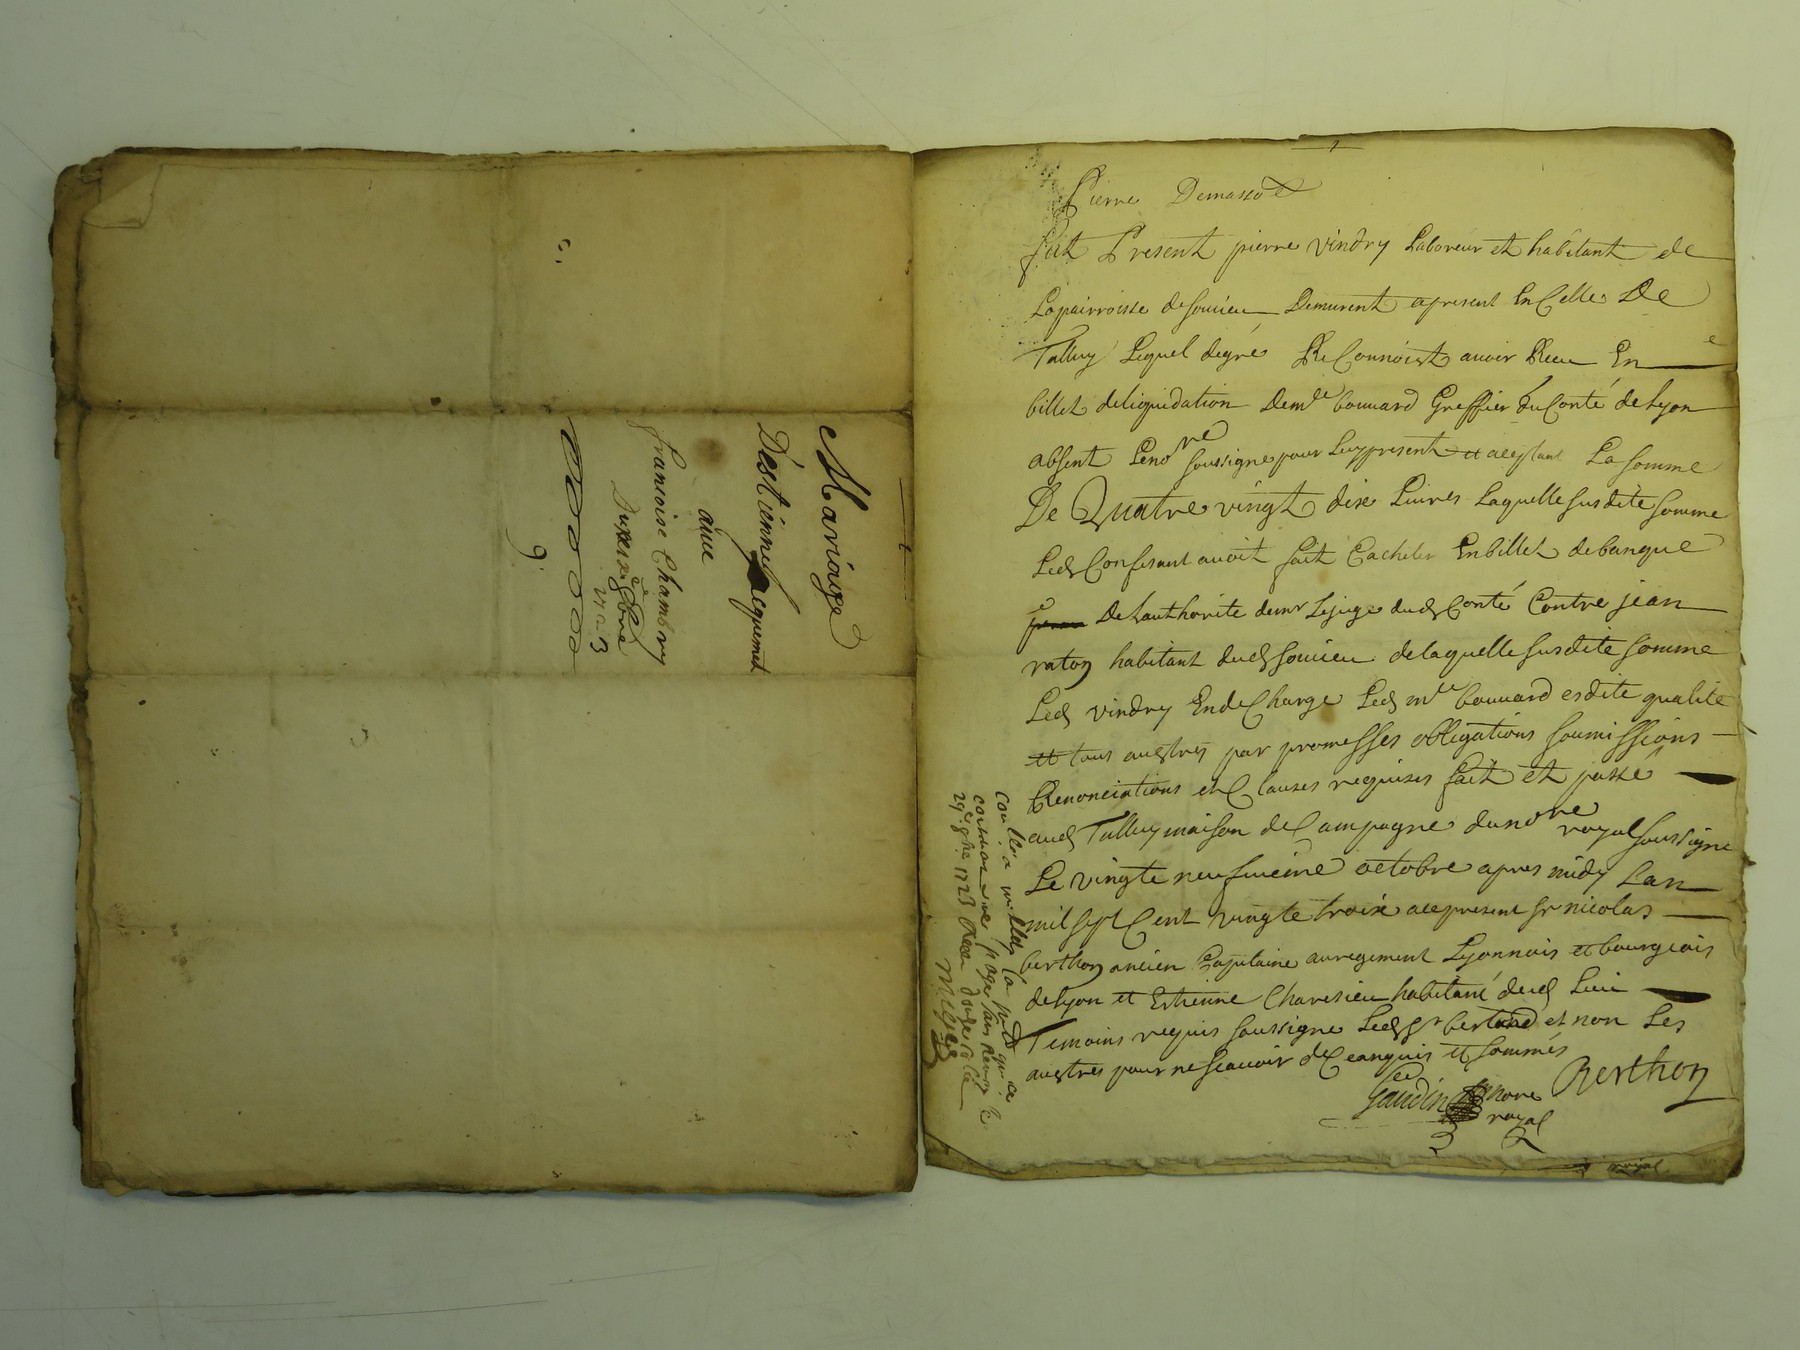 Mariage
D'estienne Jacquemet
avec
francoise Chambry
Du xxix 8bre
1723
9.
Pierre Demasso
fut Present pierre vindry Laboreur et habitant de
La pairroisse de soucieu Demurent apresent En Celle De
Talluy Lequel degré ReConnoist avoir Receu En
billet deliquidation De me bouuard Greffier du Conté de Lyon
absent Le nore soussigne pour Luy present et aceptant La somme
De Quatre vingt dix Livres Laquelle susdite somme
Led Confesant avoit fait Cacheter En billet de banque
De Lauthorite de mr Le juge dud Conté Contre jean
raton habitant dud soucieu de laquelle susdite somme
Led vindry En deCharge Led me bouuard esdite qualité
et tous auστres par promesses obligations soumissions
Renonciations et Clauses requises fait et passé
aud Talluy maison de Campagne du nore royal soussigne
Le vingte neufvieme octobre apres midy Lan
mil sept Cent vingte troix ace present sr nicolas
berthon ancien Capitaine au regiment Lyonnois et bourgeois
de Lyon et Estienne Charesieu habitant dud Lieu
Temoins requis soussigne Led sr berthon et non Les
austres pour ne scavoir de Ce enquis et sommés
Berthon
Gaudin nore
royal
29e 8bre 1723 Receu douze sols
royal